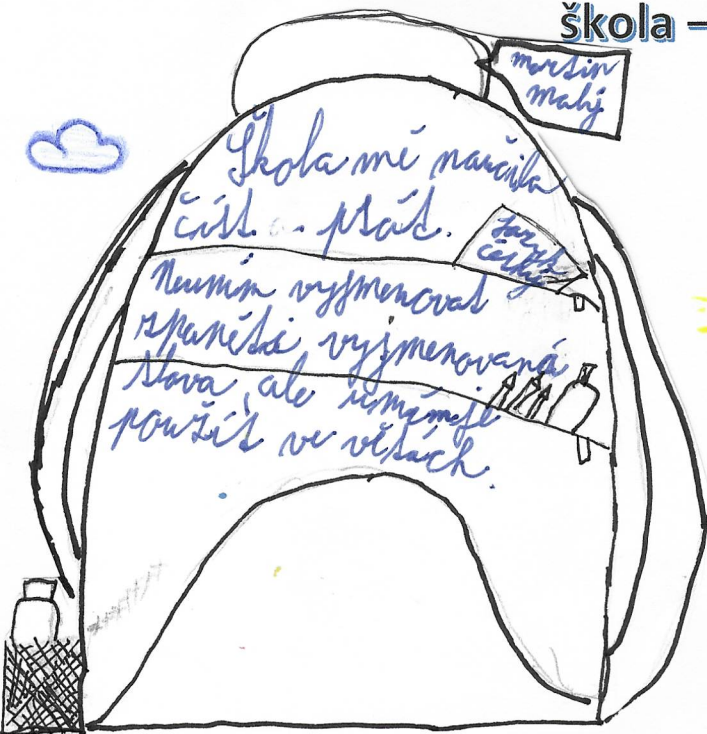 škola –
Martin
Malý
Škola mě naučila
číst a psát.
Jazyk
český
Neumím vyjmenovat
zpaměti vyjmenovaná
slova, ale umím je
použít ve větách.